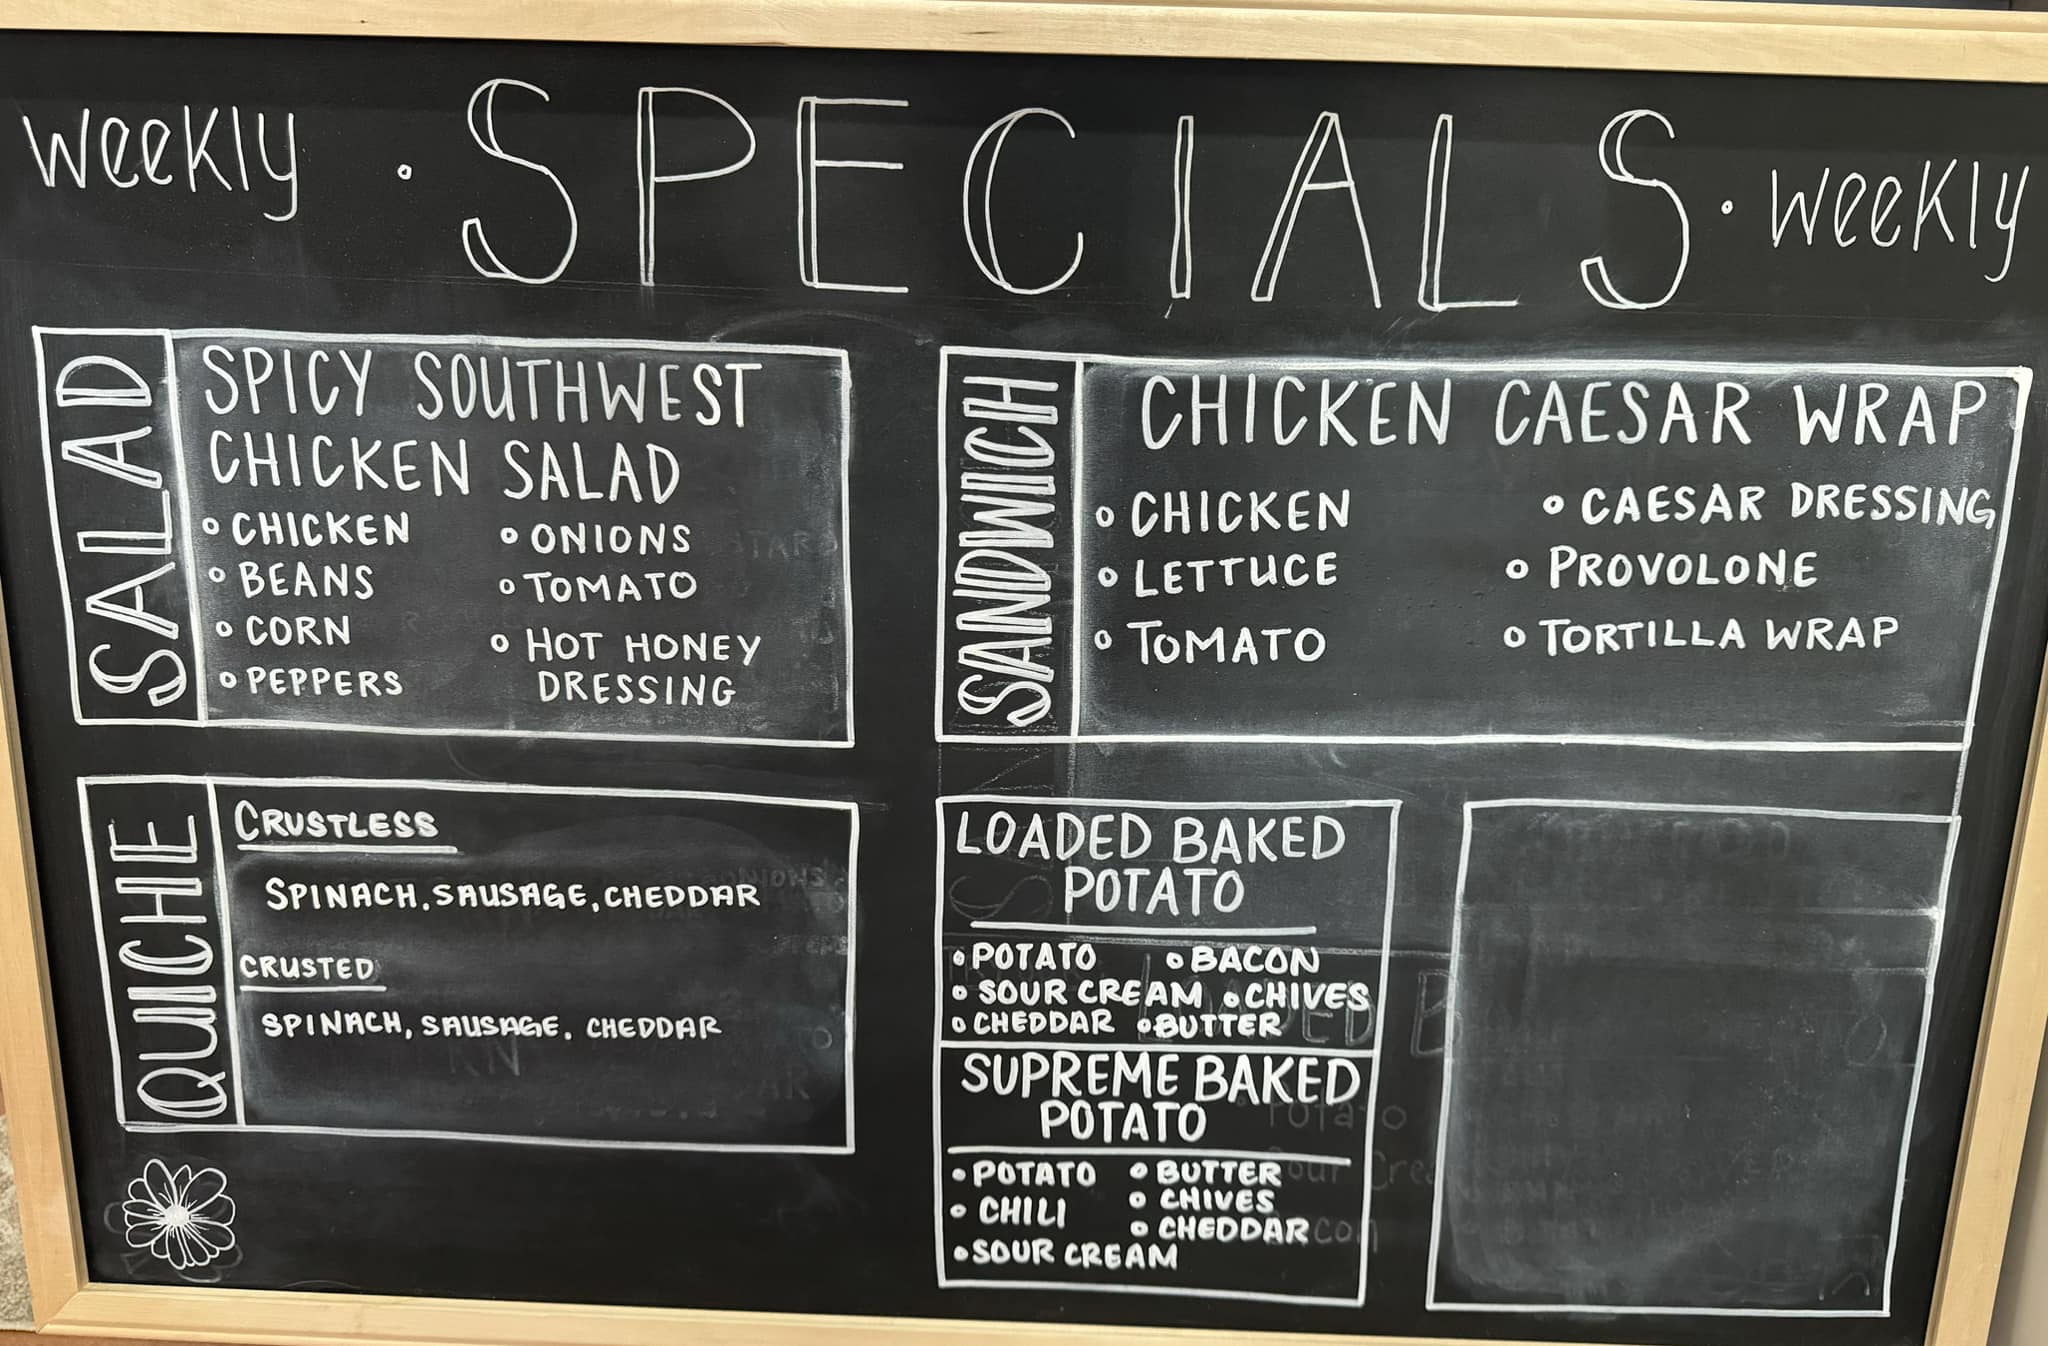 weekly · SPECIALS · weekly
SALAD
SPICY SOUTHWEST
CHICKEN SALAD
CHICKEN
BEANS
CORN
PEPPERS
ONIONS
TOMATO
HOT HONEY
DRESSING
SANDWICH
CHICKEN CAESAR WRAP
CHICKEN
LETTUCE
TOMATO
CAESAR DRESSING
PROVOLONE
TORTILLA WRAP
QUICHE
CRUSTLESS
SPINACH, SAUSAGE, CHEDDAR
CRUSTED
SPINACH, SAUSAGE, CHEDDAR
LOADED BAKED
POTATO
POTATO
BACON
SOUR CREAM
CHIVES
CHEDDAR
BUTTER
SUPREME BAKED
POTATO
POTATO
CHILI
SOUR CREAM
BUTTER
CHIVES
CHEDDAR